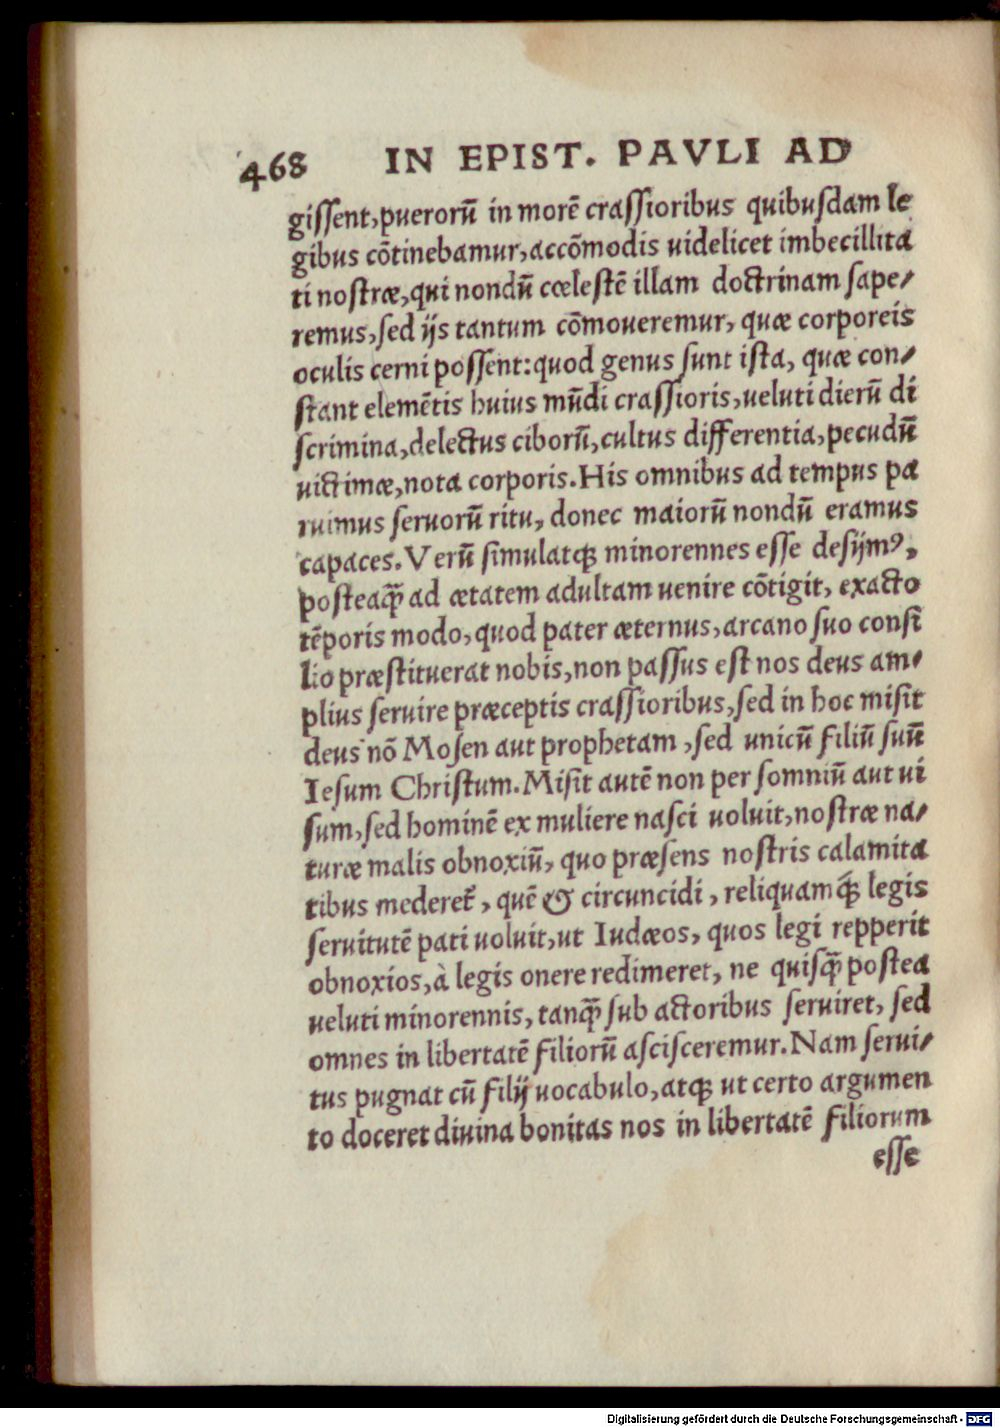 468 IN EPIST. PAVLI AD
giſſent, puerorũ in morẽ craſſioribus quibuſdam le
gibus cõtinebamur, accõmodis uidelicet imbecillita
ti noſtræ, qui nondũ cœleſtẽ illam doctrinam ſape⸗
remus, ſed ijs tantum cõmoueremur, quæ corporeis
oculis cerni poſſent: quod genus ſunt iſta, quæ con⸗
ſtant elemẽtis huius mũdi craſſioris, ueluti dierũ di
ſcrimina, delectus ciborũ, cultus differentia, pecudũ
uictimæ, nota corporis. His omnibus ad tempus pa
ruimus ſeruorũ ritu, donec maiorũ nondũ eramus
capaces. Verũ ſimulatqꝫ minorennes eſſe deſijmꝰ,
poſteaq̃ ad ætatem adultam uenire cõtigit, exacto
tẽporis modo, quod pater æternus, arcano ſuo conſi
lio præſtituerat nobis, non paſſus eſt nos deus am⸗
plius ſeruire præceptis craſſioribus, ſed in hoc miſit
deus nõ Moſen aut prophetam, ſed unicũ filiũ ſuũ
Ieſum Chriſtum. Miſit autẽ non per ſomniũ aut ui
ſum, ſed hominẽ ex muliere naſci uoluit, noſtræ na⸗
turæ malis obnoxiũ, quo præſens noſtris calamita
tibus mederet̃, quẽ & circuncidi, reliquamq́ꝫ legis
ſeruitutẽ pati uoluit, ut Iudæos, quos legi repperit
obnoxios, à legis onere redimeret, ne quiſq̃ poſtea
ueluti minorennis, tanq̃ ſub actoribus ſeruiret, ſed
omnes in libertatẽ filiorũ aſciſceremur. Nam ſerui⸗
tus pugnat cũ filij uocabulo, atqꝫ ut certo argumen
to doceret diuina bonitas nos in libertatẽ filiorum
eſſe
Digitalisierung gefördert durch die Deutsche Forschungsgemeinschaft - DFG